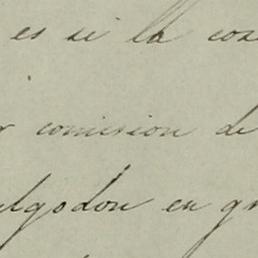 es si la cos
comision de
algodon en gr